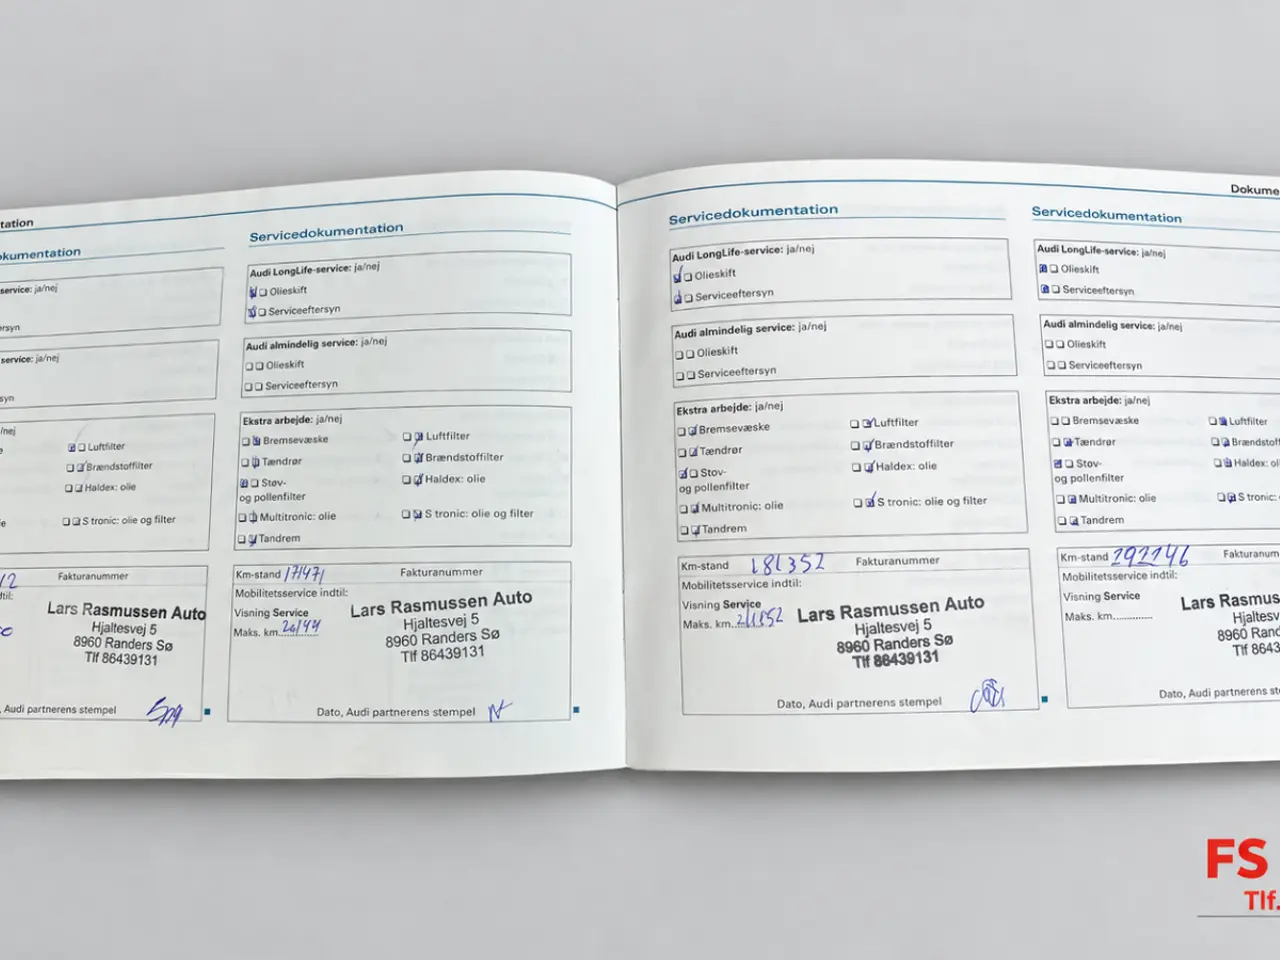 tation
okumentation
service: ja/nej
ersyn
service: ja/nej
syn
/nej
Luftfilter
Brændstoffilter
Haldex: olie
S tronic: olie og filter
Fakturanummer
Lars Rasmussen Auto
Hjaltesvej 5
8960 Randers Sø
Tlf 86439131
, Audi partnerens stempel
Servicedokumentation
Audi LongLife-service: ja/nej
Olieskift
Serviceeftersyn
Audi almindelig service: ja/nej
Olieskift
Serviceeftersyn
Ekstra arbejde: ja/nej
Bremsevæske
Luftfilter
Tændrør
Brændstoffilter
Støv-
og pollenfilter
Haldex: olie
Multitronic: olie
S tronic: olie og filter
Tandrem
Km-stand 171471
Fakturanummer
Mobilitetsservice indtil:
Visning Service
Maks. km.
Lars Rasmussen Auto
Hjaltesvej 5
8960 Randers Sø
Tlf 86439131
Dato, Audi partnerens stempel
Servicedokumentation
Audi LongLife-service: ja/nej
Olieskift
Serviceeftersyn
Audi almindelig service: ja/nej
Olieskift
Serviceeftersyn
Ekstra arbejde: ja/nej
Bremsevæske
Luftfilter
Tændrør
Brændstoffilter
Støv-
og pollenfilter
Haldex: olie
Multitronic: olie
S tronic: olie og filter
Tandrem
Km-stand 181352
Fakturanummer
Mobilitetsservice indtil:
Visning Service
Maks. km. 211352
Lars Rasmussen Auto
Hjaltesvej 5
8960 Randers Sø
Tlf 86439131
Dato, Audi partnerens stempel
Dokume
Servicedokumentation
Audi LongLife-service: ja/nej
Olieskift
Serviceeftersyn
Audi almindelig service: ja/nej
Olieskift
Serviceeftersyn
Ekstra arbejde: ja/nej
Bremsevæske
Luftfilter
Tændrør
Brændstoff
Støv-
og pollenfilter
Haldex: oli
Multitronic: olie
S tronic:
Tandrem
Km-stand
Fakturanum
Mobilitetsservice indtil:
Visning Service
Maks. km.
Lars Rasmus
Hjaltesv
8960 Rand
Tlf 864
Dato, Audi partnerens ste
FS
Tlf.